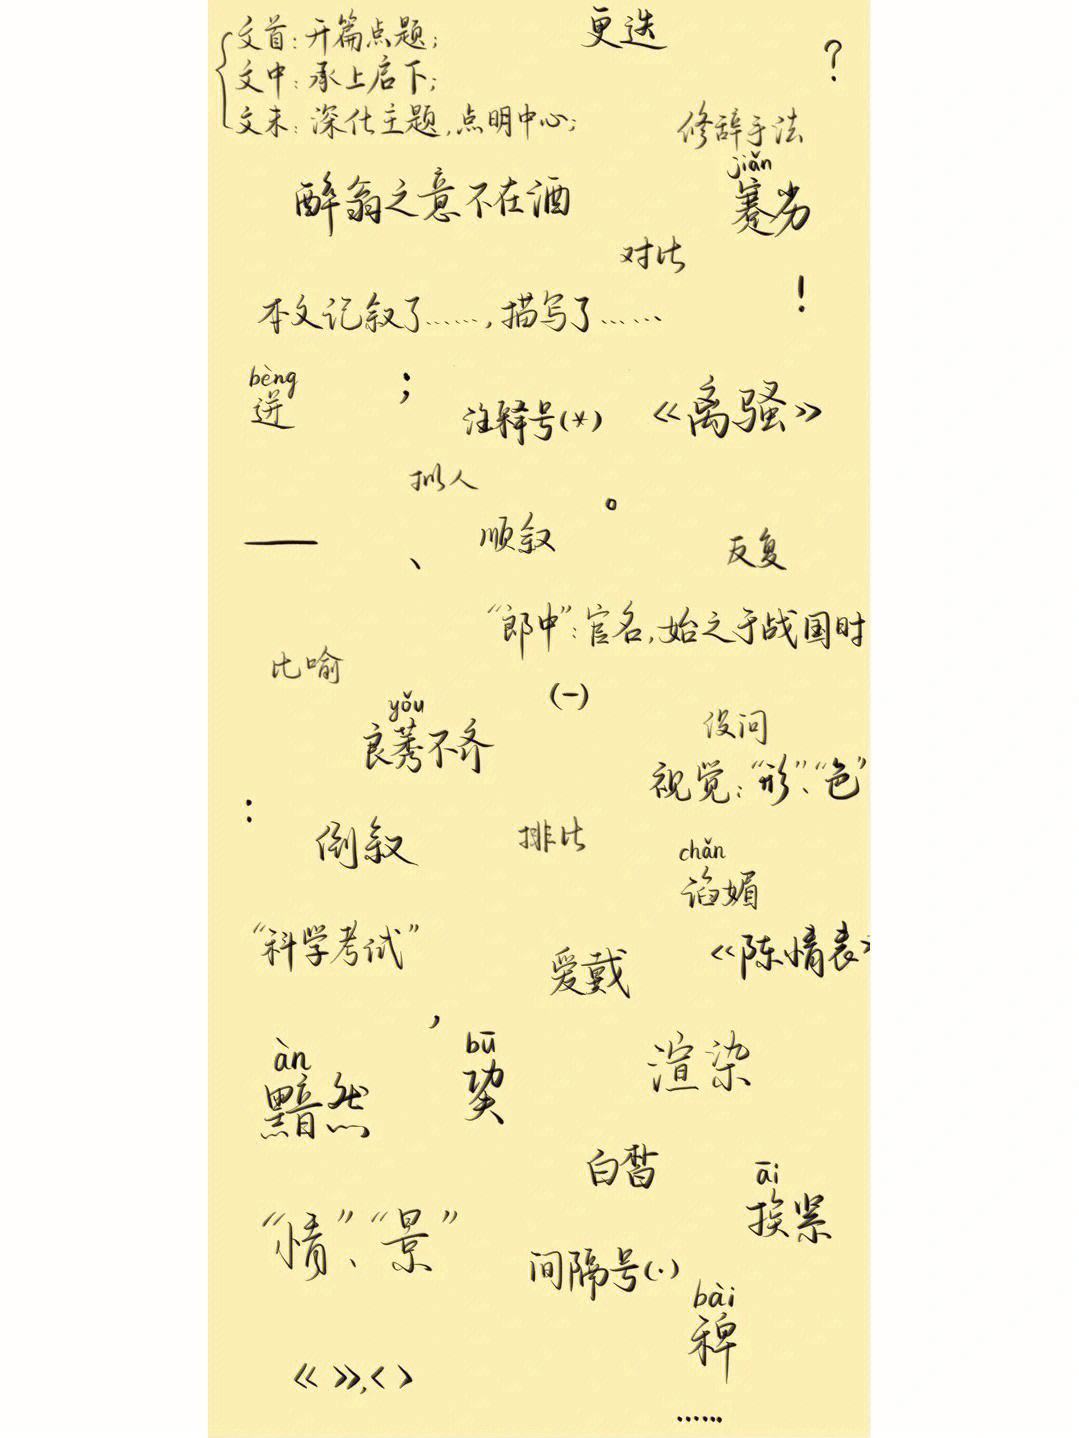 文首：开篇点题；
更迭
？
文中：承上启下；
文末：深化主题，点明中心；
修辞手法
jiǎn
蹇劣
醉翁之意不在酒
对比
！
本文记叙了……，描写了……
bèng
迸
；
注释号(*)
《离骚》
拟人
。
——
、
顺叙
反复
“郎中”：官名，始之于战国时
比喻
(一)
yǒu
良莠不齐
设问
视觉：“形”、“色”
：
倒叙
排比
chǎn
谄媚
“科学考试”
爱戴
《陈情表》
，
àn
黯然
bū
渲染
白皙
āi
挨紧
“情”、“景”
间隔号(·)
bài
稗
《 》，〈 〉
……